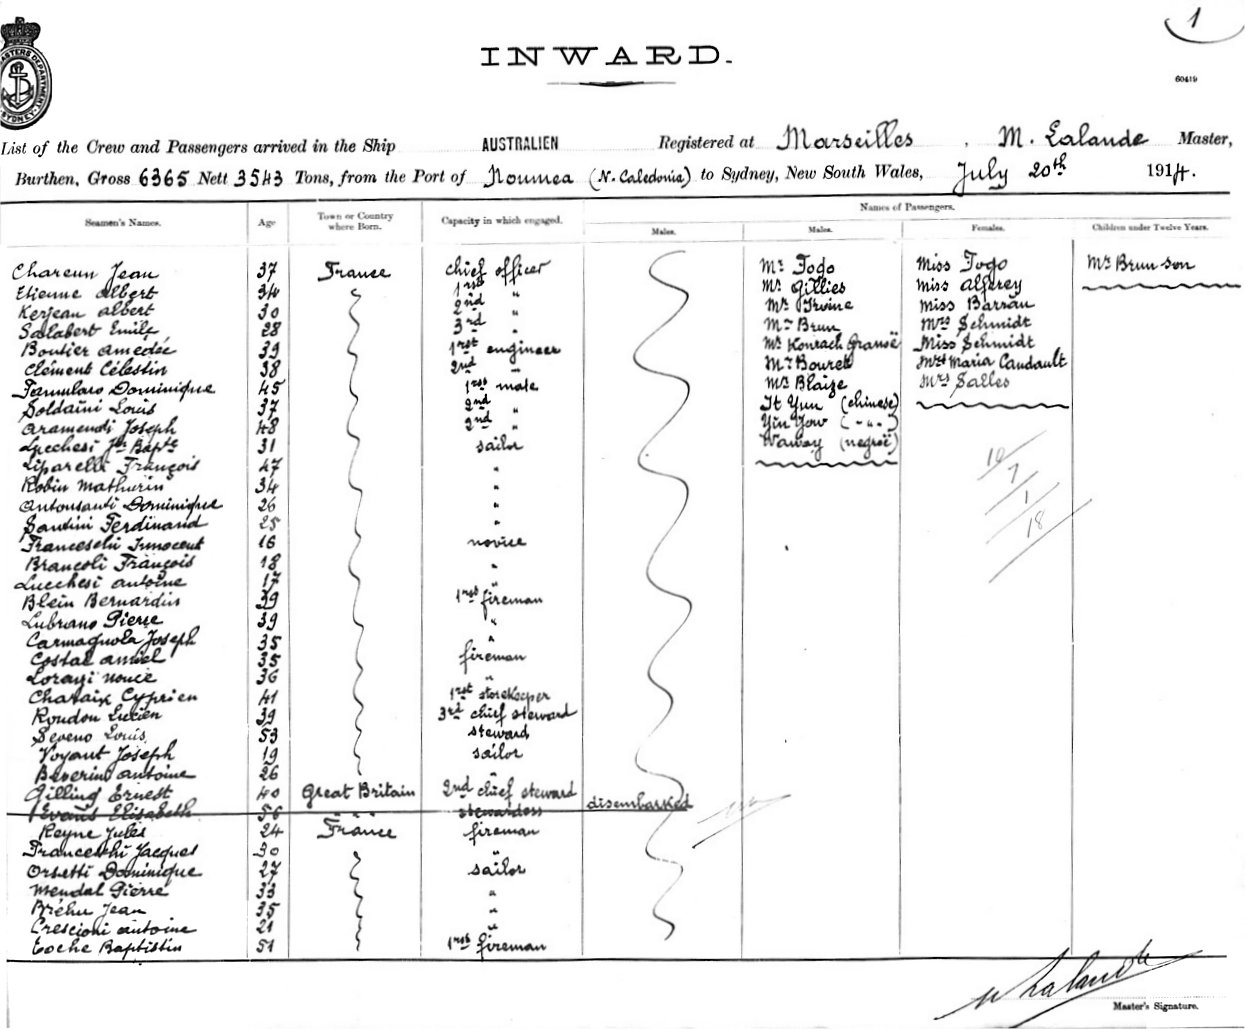 1
INWARD.
60419
List of the Crew and Passengers arrived in the Ship AUSTRALIEN Registered at Marseilles, M. Lalande Master,
Burthen, Gross 6365 Nett 3543 Tons, from the Port of Noumea (N. Caledonia) to Sydney, New South Wales, July 20th 1914.
Seamen's Names. Age Town or Country where Born. Capacity in which engaged. Names of Passengers.
Males. Males. Females. Children under Twelve Years.
Chareun Jean 37 France chief officer Mr Togo Miss Togo Mr Brun son
Etienne Albert 34 1rst " Mr Gillies Miss Alferey
Kerjean Albert 30 2nd " Mr Irvine Miss Barrau
Salabert Emile 28 3rd " Mr Brun Mrs Schmidt
Boutier Amedée 39 1rst engineer Mr Konrach Miss Schmidt
Clément Célestin 38 2nd " Mr Bourett Maria Caudault
Famularo Dominique 45 1rst mate Mr Blaize Mrs Salles
Soldaini Louis 37 2nd " It Yun (chinese)
Aramendi Joseph 48 2nd " Yin Yow ( - " - )
Lucchesi Jn Bapte 31 sailor Waway (negroë)
Liparelli François 47 "
Robin Mathurin 34 "
Antonsanti Dominique 26 "
Santini Ferdinand 25 "
Franceschi Innocent 16 novice
Brancoli François 18 "
Lucchesi Antoine 17 "
Blein Bernardin 39 1rst fireman
Lubrano Pierre 39 "
Carmagnola Joseph 35 "
Costal Amiel 35 fireman
Lorazi Nouce 36 "
Chataix Cyprien 41 1rst storekeeper
Roudon Lucien 39 3rd chief steward
Seveno Louis 53 steward
Voyant Joseph 19 sailor
Beverini Antoine 26 "
Gilling Ernest 40 Great Britain 2nd chief steward
Evans Elisabeth 56 " " stewardess disembarked
Reyne Jules 24 France fireman
Franceschi Jacques 30 "
Orsetti Dominique 27 sailor
Mendal Pierre 33 "
Bréhu Jean 35 "
Crescioni Antoine 21 "
Eoche Baptistin 51 1rst fireman
10
7
1
18
M Lalande
Master's Signature.